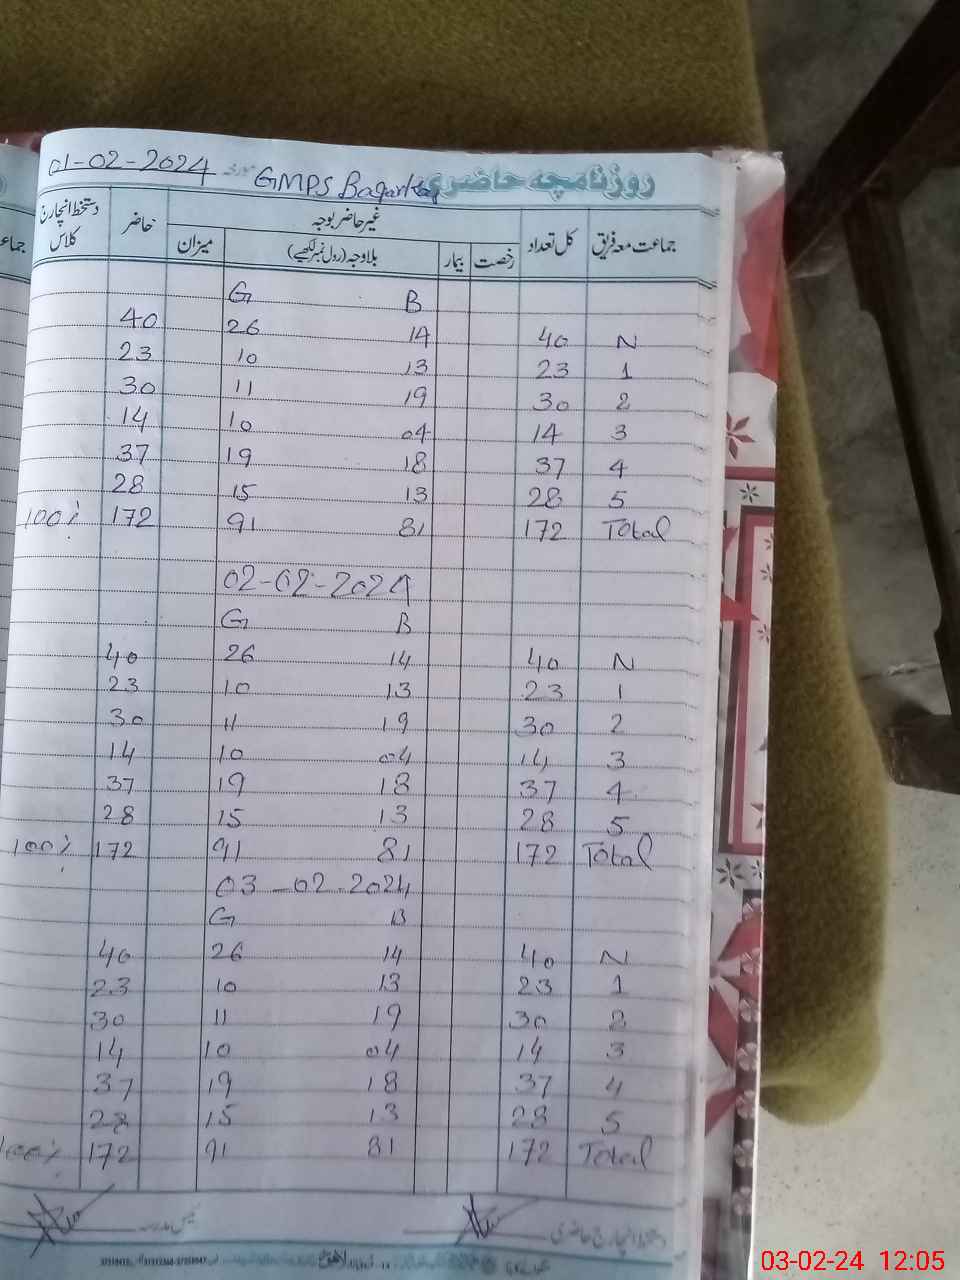 روزنامچہ حاضری GMPS مورخہ 01-02-2024
جماعت معہ فریق کل تعداد غیر حاضر بوجہ حاضر دستخط انچارج کلاس
رخصت بیمار بلاوجہ (رول نمبر لکھیے) میزان
G B
40 26 14 40 N
23 10 13 23 1
30 11 19 30 2
14 10 04 14 3
37 19 18 37 4
28 15 13 28 5
100% 172 91 81 172 Total
02-02-2024
G B
40 26 14 40 N
23 10 13 23 1
30 11 19 30 2
14 10 04 14 3
37 19 18 37 4
28 15 13 28 5
100% 172 91 81 172 Total
03-02-2024
G B
40 26 14 40 N
23 10 13 23 1
30 11 19 30 2
14 10 04 14 3
37 19 18 37 4
28 15 13 28 5
100% 172 91 81 172 Total
دستخط انچارج حاضری
03-02-24 12:05